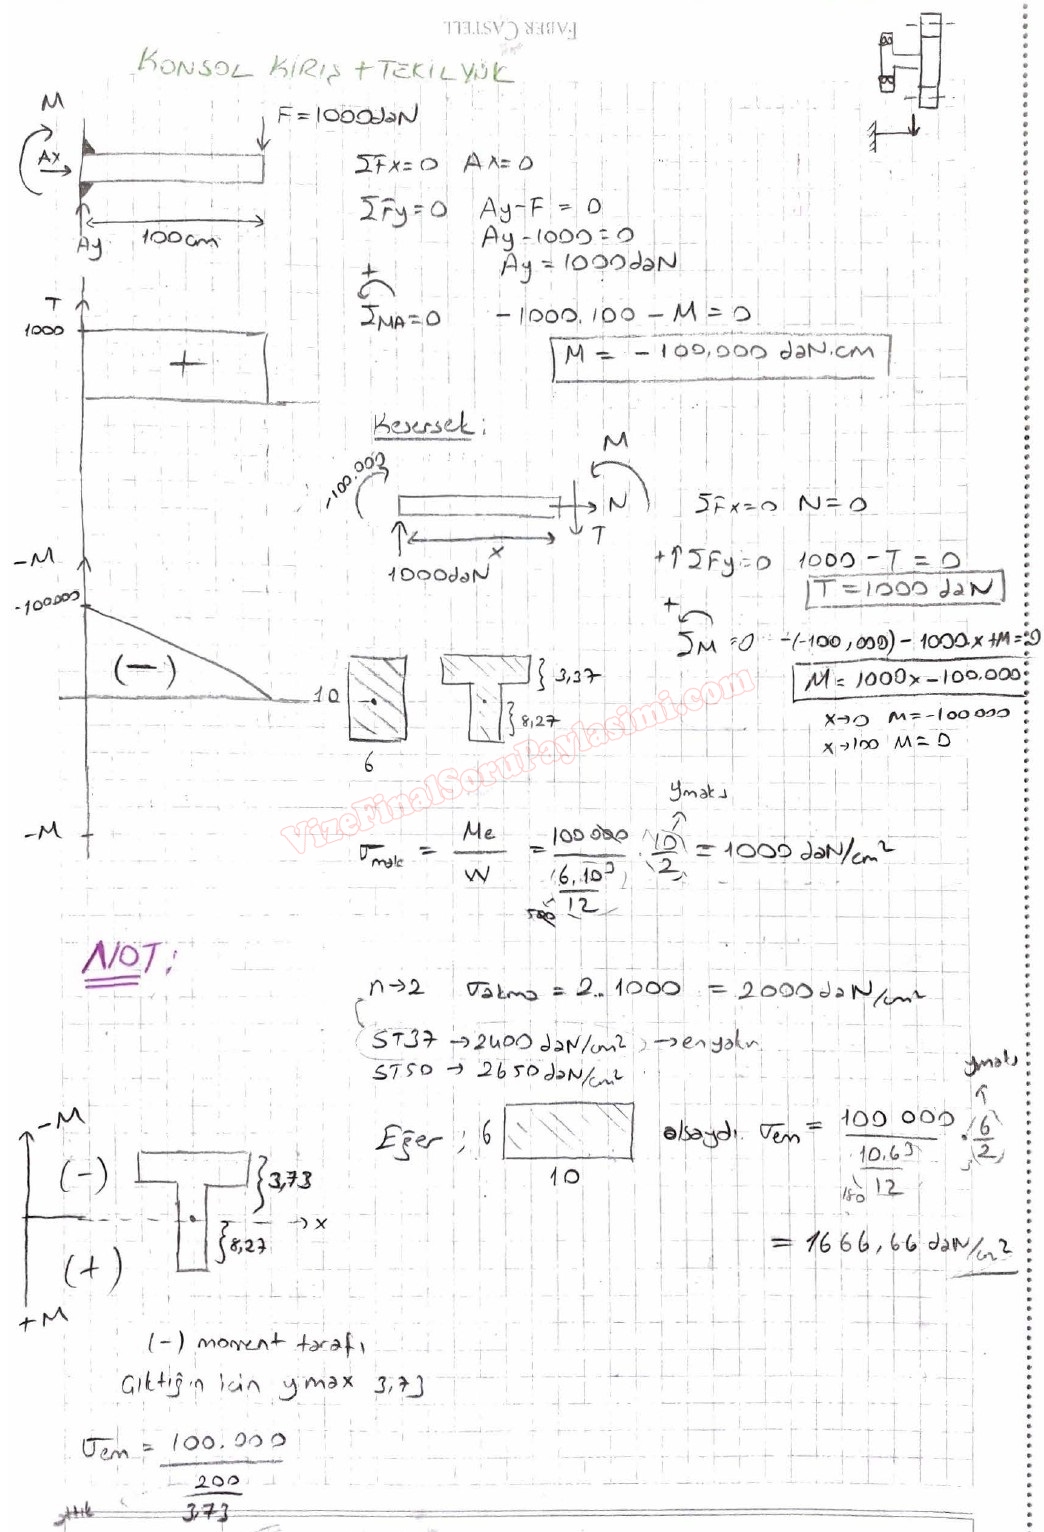 FABER CASTELL
KONSOL KİRİŞ + TEKİL YÜK
M
F = 1000 daN
Ax
Ay
100 cm
ΣFx=0 Ax=0
ΣFy=0 Ay-F = 0
Ay-1000=0
Ay = 1000 daN
+
ΣMA=0 -1000.100 - M = 0
M = -100.000 daN.cm
T
1000
+
Kesersek:
-100.000
M
N
T
x
1000daN
ΣFx=0 N=0
+↑ΣFy=0 1000 - T = 0
T = 1000 daN
+
ΣM=0 -(-100,000) - 1000.x + M = 0
M = 1000x - 100.000
x→0 M = -100000
x→100 M = 0
-M
-100.000
(-)
-M
10
6
3,37
8,27
VizeFinalSoruPaylasimi.com
σmak = Me/W = 100 000/(6.10³/12) . (10/2) = 1000 daN/cm²
ymaks
500
NOT:
n→2 σakma = 2..1000 = 2000 daN/cm²
ST37 → 2400 daN/cm² → en yakın
ST50 → 2650 daN/cm²
Eğer ; 6
10
olsaydı σem = 100 000/(10.6³/12) . (6/2)
ymaks
180
= 1666,66 daN/cm²
-M
(-)
(+)
+M
3,73
→x
8,27
(-) moment tarafı
Çıktığın için ymax 3,73
σem = 100.000/(200/3,73)